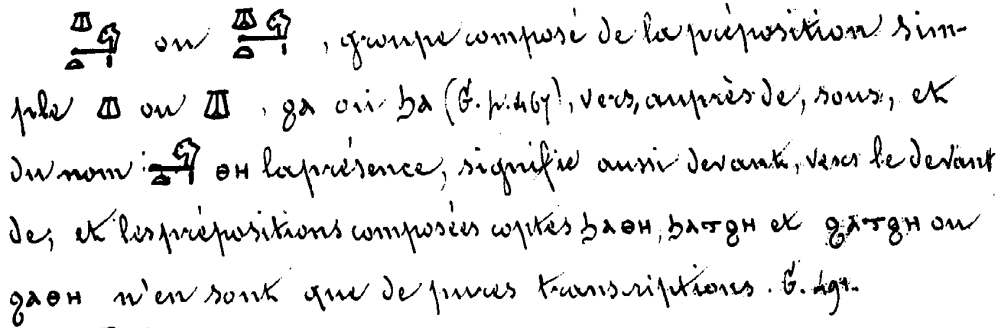 ou , groupe composé de la préposition sim-
ple ou , ϩⲁ ou ϧⲁ (G. p. 467), vers, auprès de, sous, et
du nom ⲑⲏ la présence, signifie aussi devant, vers le devant
de; et les prépositions composées coptes ϧⲁⲑⲏ, ϧⲁⲧϩⲏ et ϩⲁⲧϩⲏ ou
ϩⲁⲑⲏ n'en sont que de pures transcriptions. G. 491.